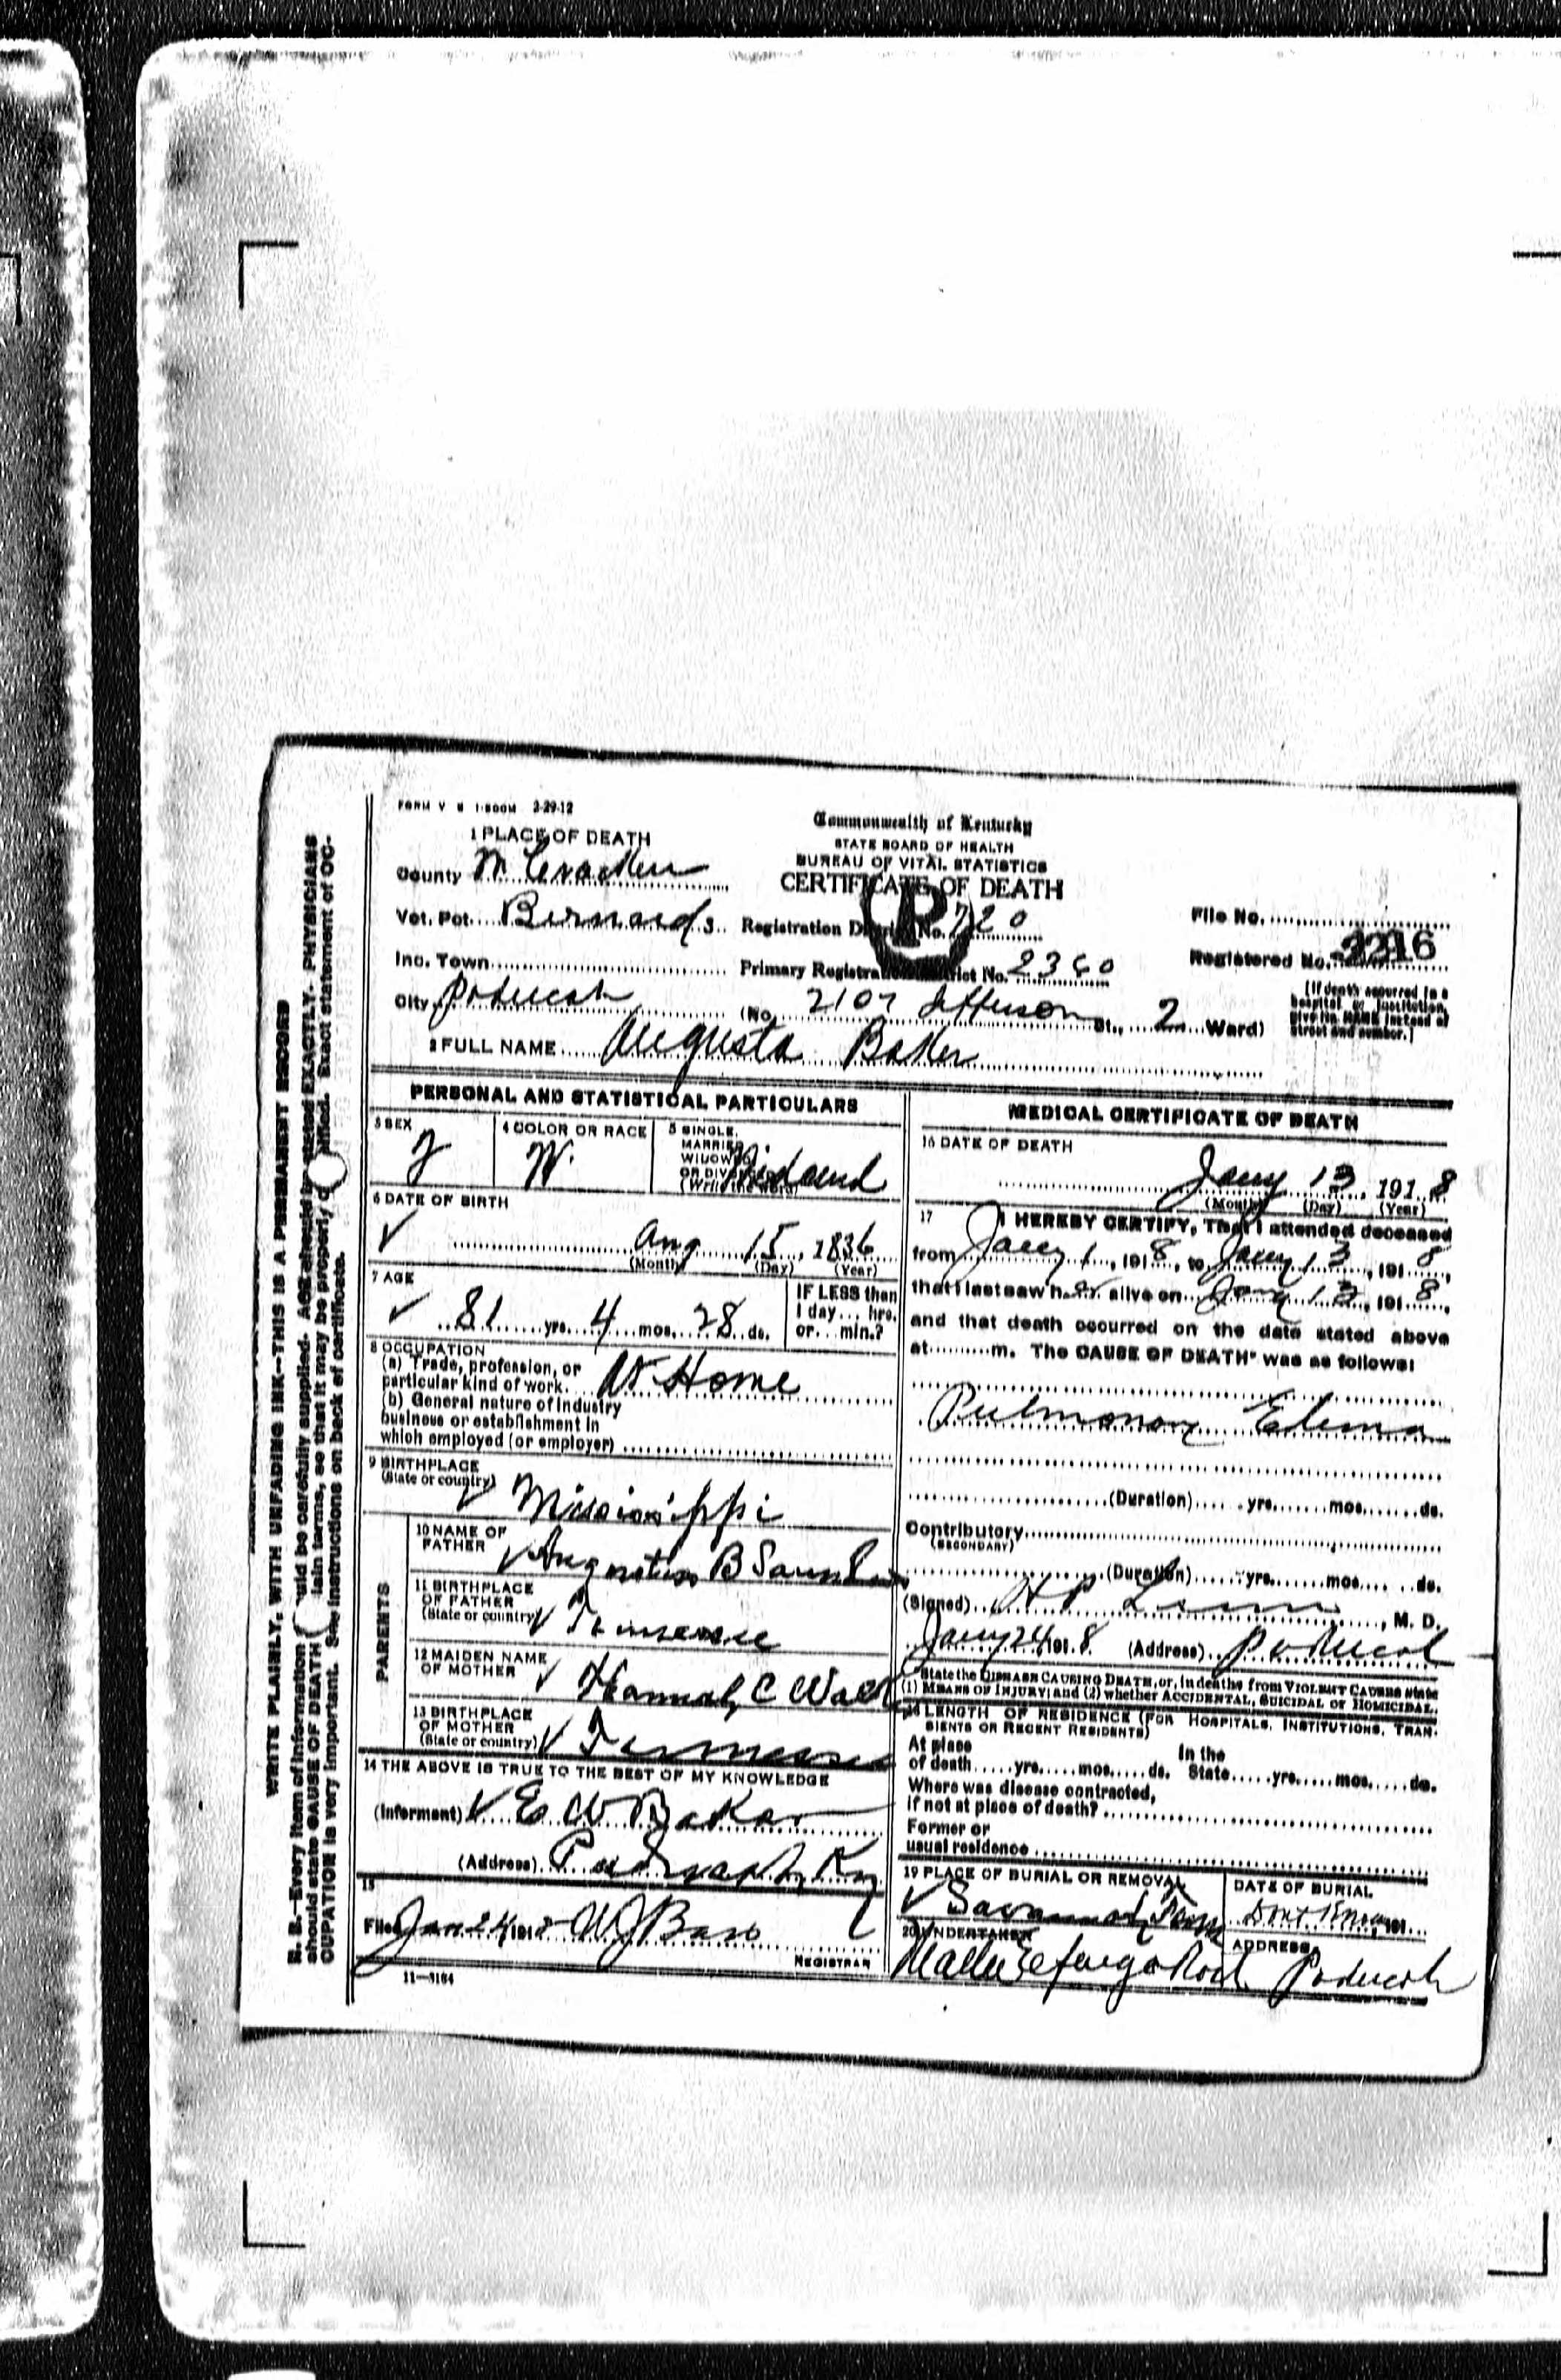 FORM V S 1-500M 3-29-12
1 PLACE OF DEATH
County McCracken
Vot. Pct. Bernards
Inc. Town
City Paducah
Commonwealth of Kentucky
STATE BOARD OF HEALTH
BUREAU OF VITAL STATISTICS
CERTIFICATE OF DEATH
Registration District No. 720
Primary Registration District No. 2360
(No. 2107 Jefferson St., 2 Ward)
File No.
Registered No. 2216
[If death occurred in a
hospital or institution,
give its NAME instead of
street and number.]
2 FULL NAME Augusta Baker
PERSONAL AND STATISTICAL PARTICULARS
3 SEX
F
4 COLOR OR RACE
W.
5 SINGLE,
MARRIED,
WIDOWED,
OR DIVORCED
(Write the word)
Widowed
6 DATE OF BIRTH
Aug 15, 1836
(Month) (Day) (Year)
7 AGE
81 yrs. 4 mos. 28 ds.
IF LESS than
1 day ... hrs.
or ... min.?
8 OCCUPATION
(a) Trade, profession, or
particular kind of work. At Home
(b) General nature of industry
business or establishment in
which employed (or employer)
9 BIRTHPLACE
(State or country)
Mississippi
PARENTS
10 NAME OF
FATHER
Augustus B
11 BIRTHPLACE
OF FATHER
(State or country)
Tennessee
12 MAIDEN NAME
OF MOTHER
Hannah C
13 BIRTHPLACE
OF MOTHER
(State or country)
Tennessee
14 THE ABOVE IS TRUE TO THE BEST OF MY KNOWLEDGE
(Informant) E W Baker
(Address) Paducah, Ky
15
Filed Jan 24 1918 W J Bass
REGISTRAR
11-3184
MEDICAL CERTIFICATE OF DEATH
16 DATE OF DEATH
Jany 13, 1918
(Month) (Day) (Year)
17 I HEREBY CERTIFY, That I attended deceased
from Jany 1, 1918, to Jany 13, 1918,
that I last saw her alive on Jany 13, 1918,
and that death occurred on the date stated above
at m. The CAUSE OF DEATH* was as follows:
Pulmonary Edema
(Duration) yrs. mos. ds.
Contributory
(SECONDARY)
(Duration) yrs. mos. ds.
(Signed) H P, M. D.
Jany 24 1918 (Address) Paducah
*State the DISEASE CAUSING DEATH, or, in deaths from VIOLENT CAUSES state
(1) MEANS OF INJURY; and (2) whether ACCIDENTAL, SUICIDAL or HOMICIDAL.
18 LENGTH OF RESIDENCE (FOR HOSPITALS, INSTITUTIONS, TRAN-
SIENTS OR RECENT RESIDENTS)
At place
of death yrs. mos. ds.
In the
State yrs. mos. ds.
Where was disease contracted,
if not at place of death?
Former or
usual residence
19 PLACE OF BURIAL OR REMOVAL
Savannah, Tenn
DATE OF BURIAL
Dont Know, 191
20 UNDERTAKER
ADDRESS
Paducah
WRITE PLAINLY, WITH UNFADING INK—THIS IS A PERMANENT RECORD
N. B.—Every item of information should be carefully supplied. AGE should be stated EXACTLY. PHYSICIANS
should state CAUSE OF DEATH in plain terms, so that it may be properly classified. Exact statement of OC-
CUPATION is very important. See instructions on back of certificate.